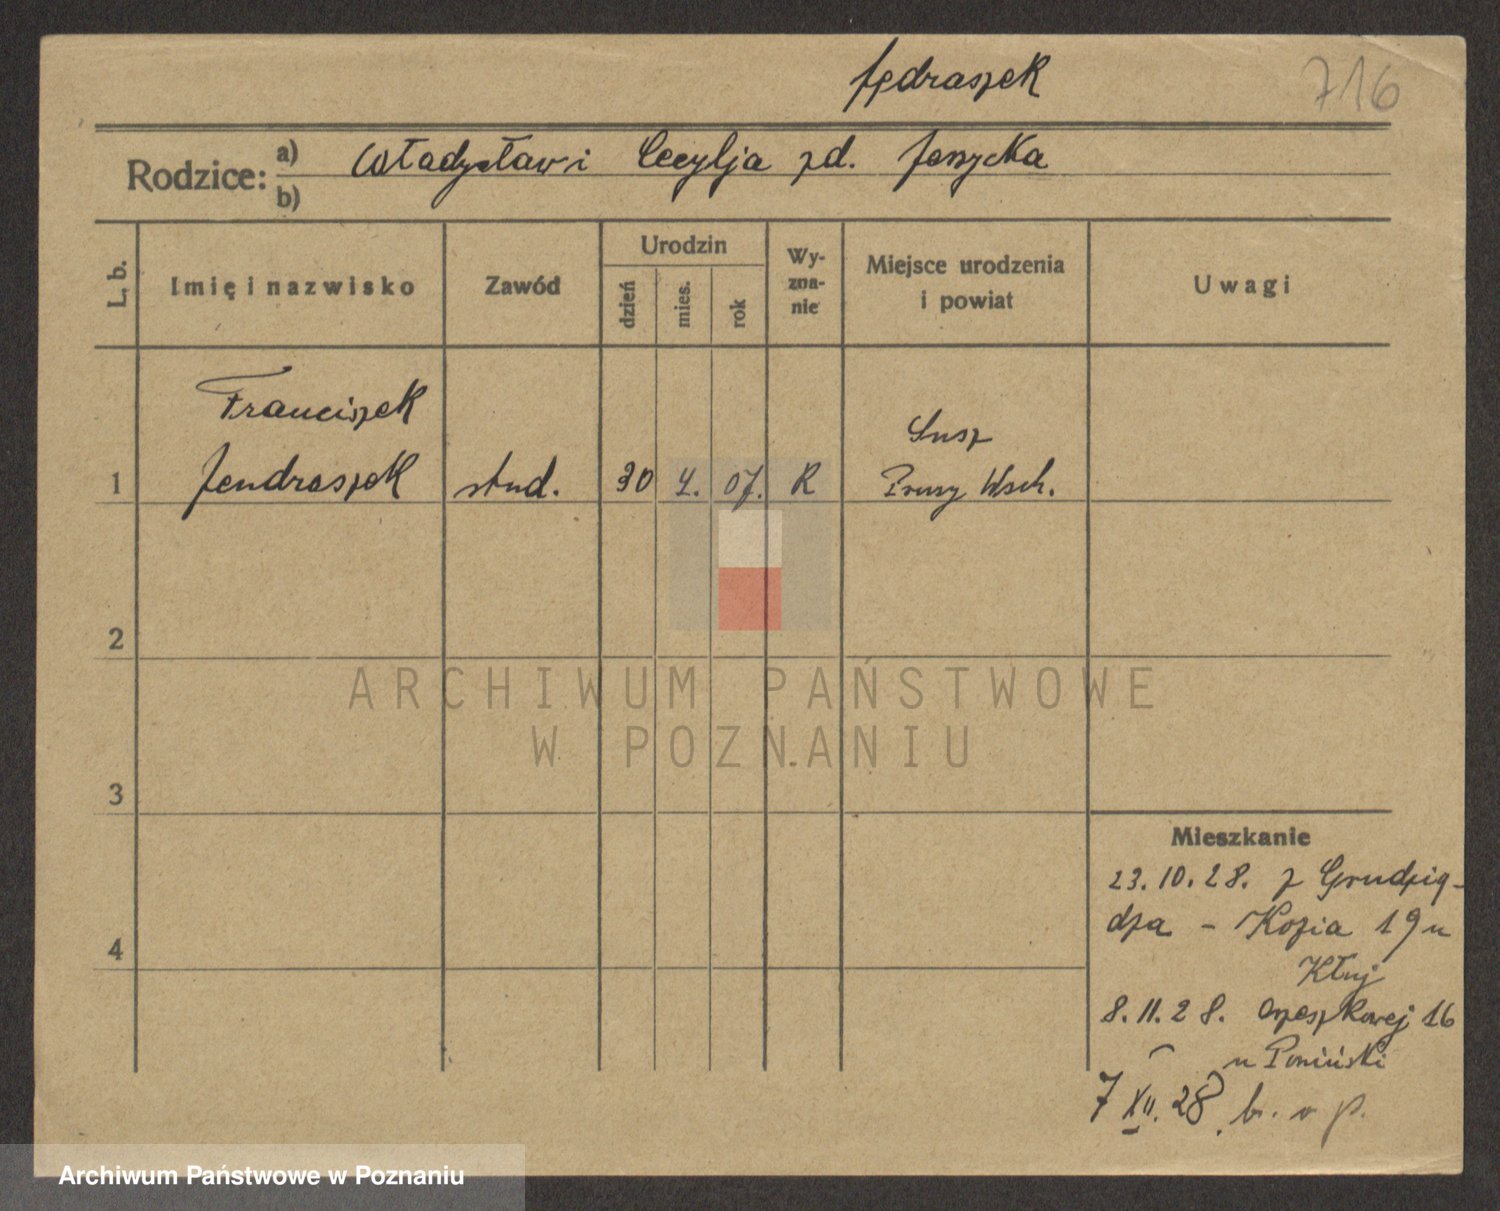 Jędraszek
716
Rodzice: a) Władysław i Cecylja zd. Jeszycka
b)
L. b.
Imię i nazwisko
Zawód
Urodzin
dzień
mies.
rok
Wy-
zna-
nie
Miejsce urodzenia
i powiat
Uwagi
Franciszek
1 Jendraszek stud. 30 4. 07. R
Susz
Prusy Wsch.
2
3
4
Mieszkanie
23.10.28. z Grudzią-
dza - Kozia 19 u
8.11.28. Orzeszkowej 16
u Poniński
7 XII. 28.
ARCHIWUM PAŃSTWOWE
W POZNANIU
Archiwum Państwowe w Poznaniu